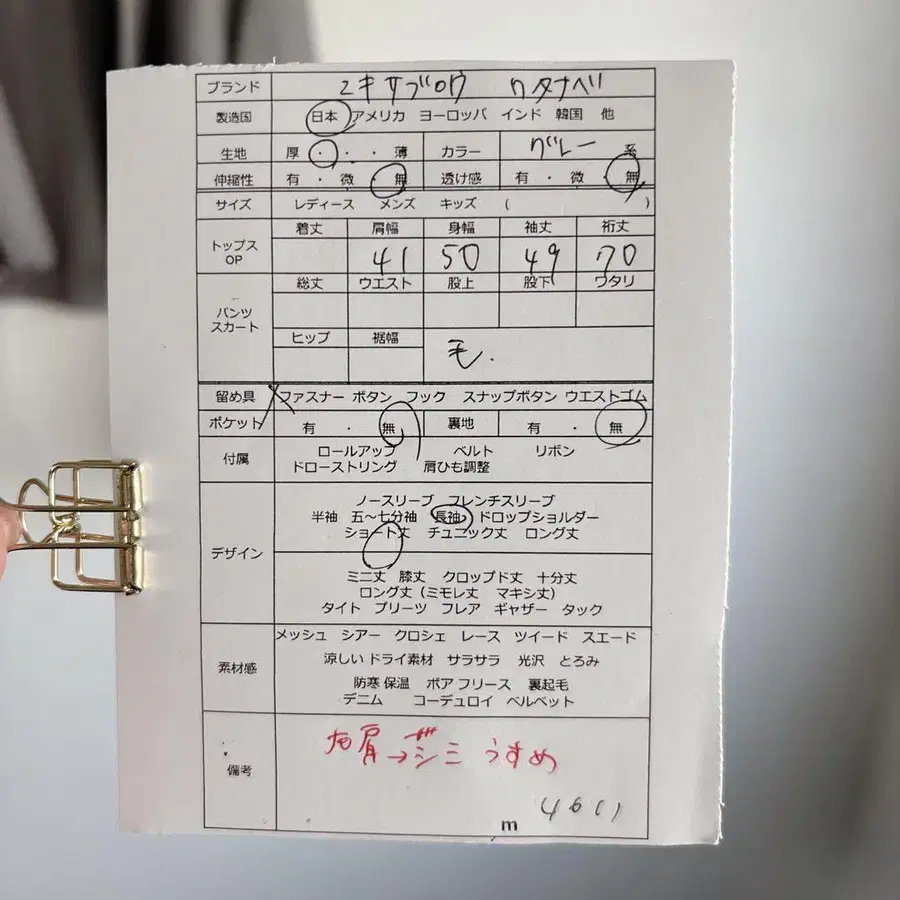 ブランド ユキサブロウ ワタナベ
製造国 日本 アメリカ ヨーロッパ インド 韓国 他
生地 厚 ・ ・ ・ 薄 カラー グレー 系
伸縮性 有 ・ 微 ・ 無 透け感 有 ・ 微 ・ 無
サイズ レディース メンズ キッズ ( )
着丈 肩幅 身幅 袖丈 裄丈
トップス OP 41 50 49 70
総丈 ウエスト 股上 股下 ワタリ
パンツ
スカート
ヒップ 裾幅
毛.
留め具 ファスナー ボタン フック スナップボタン ウエストゴム
ポケット 有 ・ 無 裏地 有 ・ 無
付属 ロールアップ ベルト リボン
ドローストリング 肩ひも調整
ノースリーブ フレンチスリーブ
半袖 五〜七分袖 長袖 ドロップショルダー
ショート丈 チュニック丈 ロング丈
デザイン
ミニ丈 膝丈 クロップド丈 十分丈
ロング丈(ミモレ丈 マキシ丈)
タイト プリーツ フレア ギャザー タック
メッシュ シアー クロシェ レース ツイード スエード
素材感 涼しい ドライ素材 サラサラ 光沢 とろみ
防寒 保温 ボア フリース 裏起毛
デニム コーデュロイ ベルベット
備考 右肩→シミ うすめ
m 4611